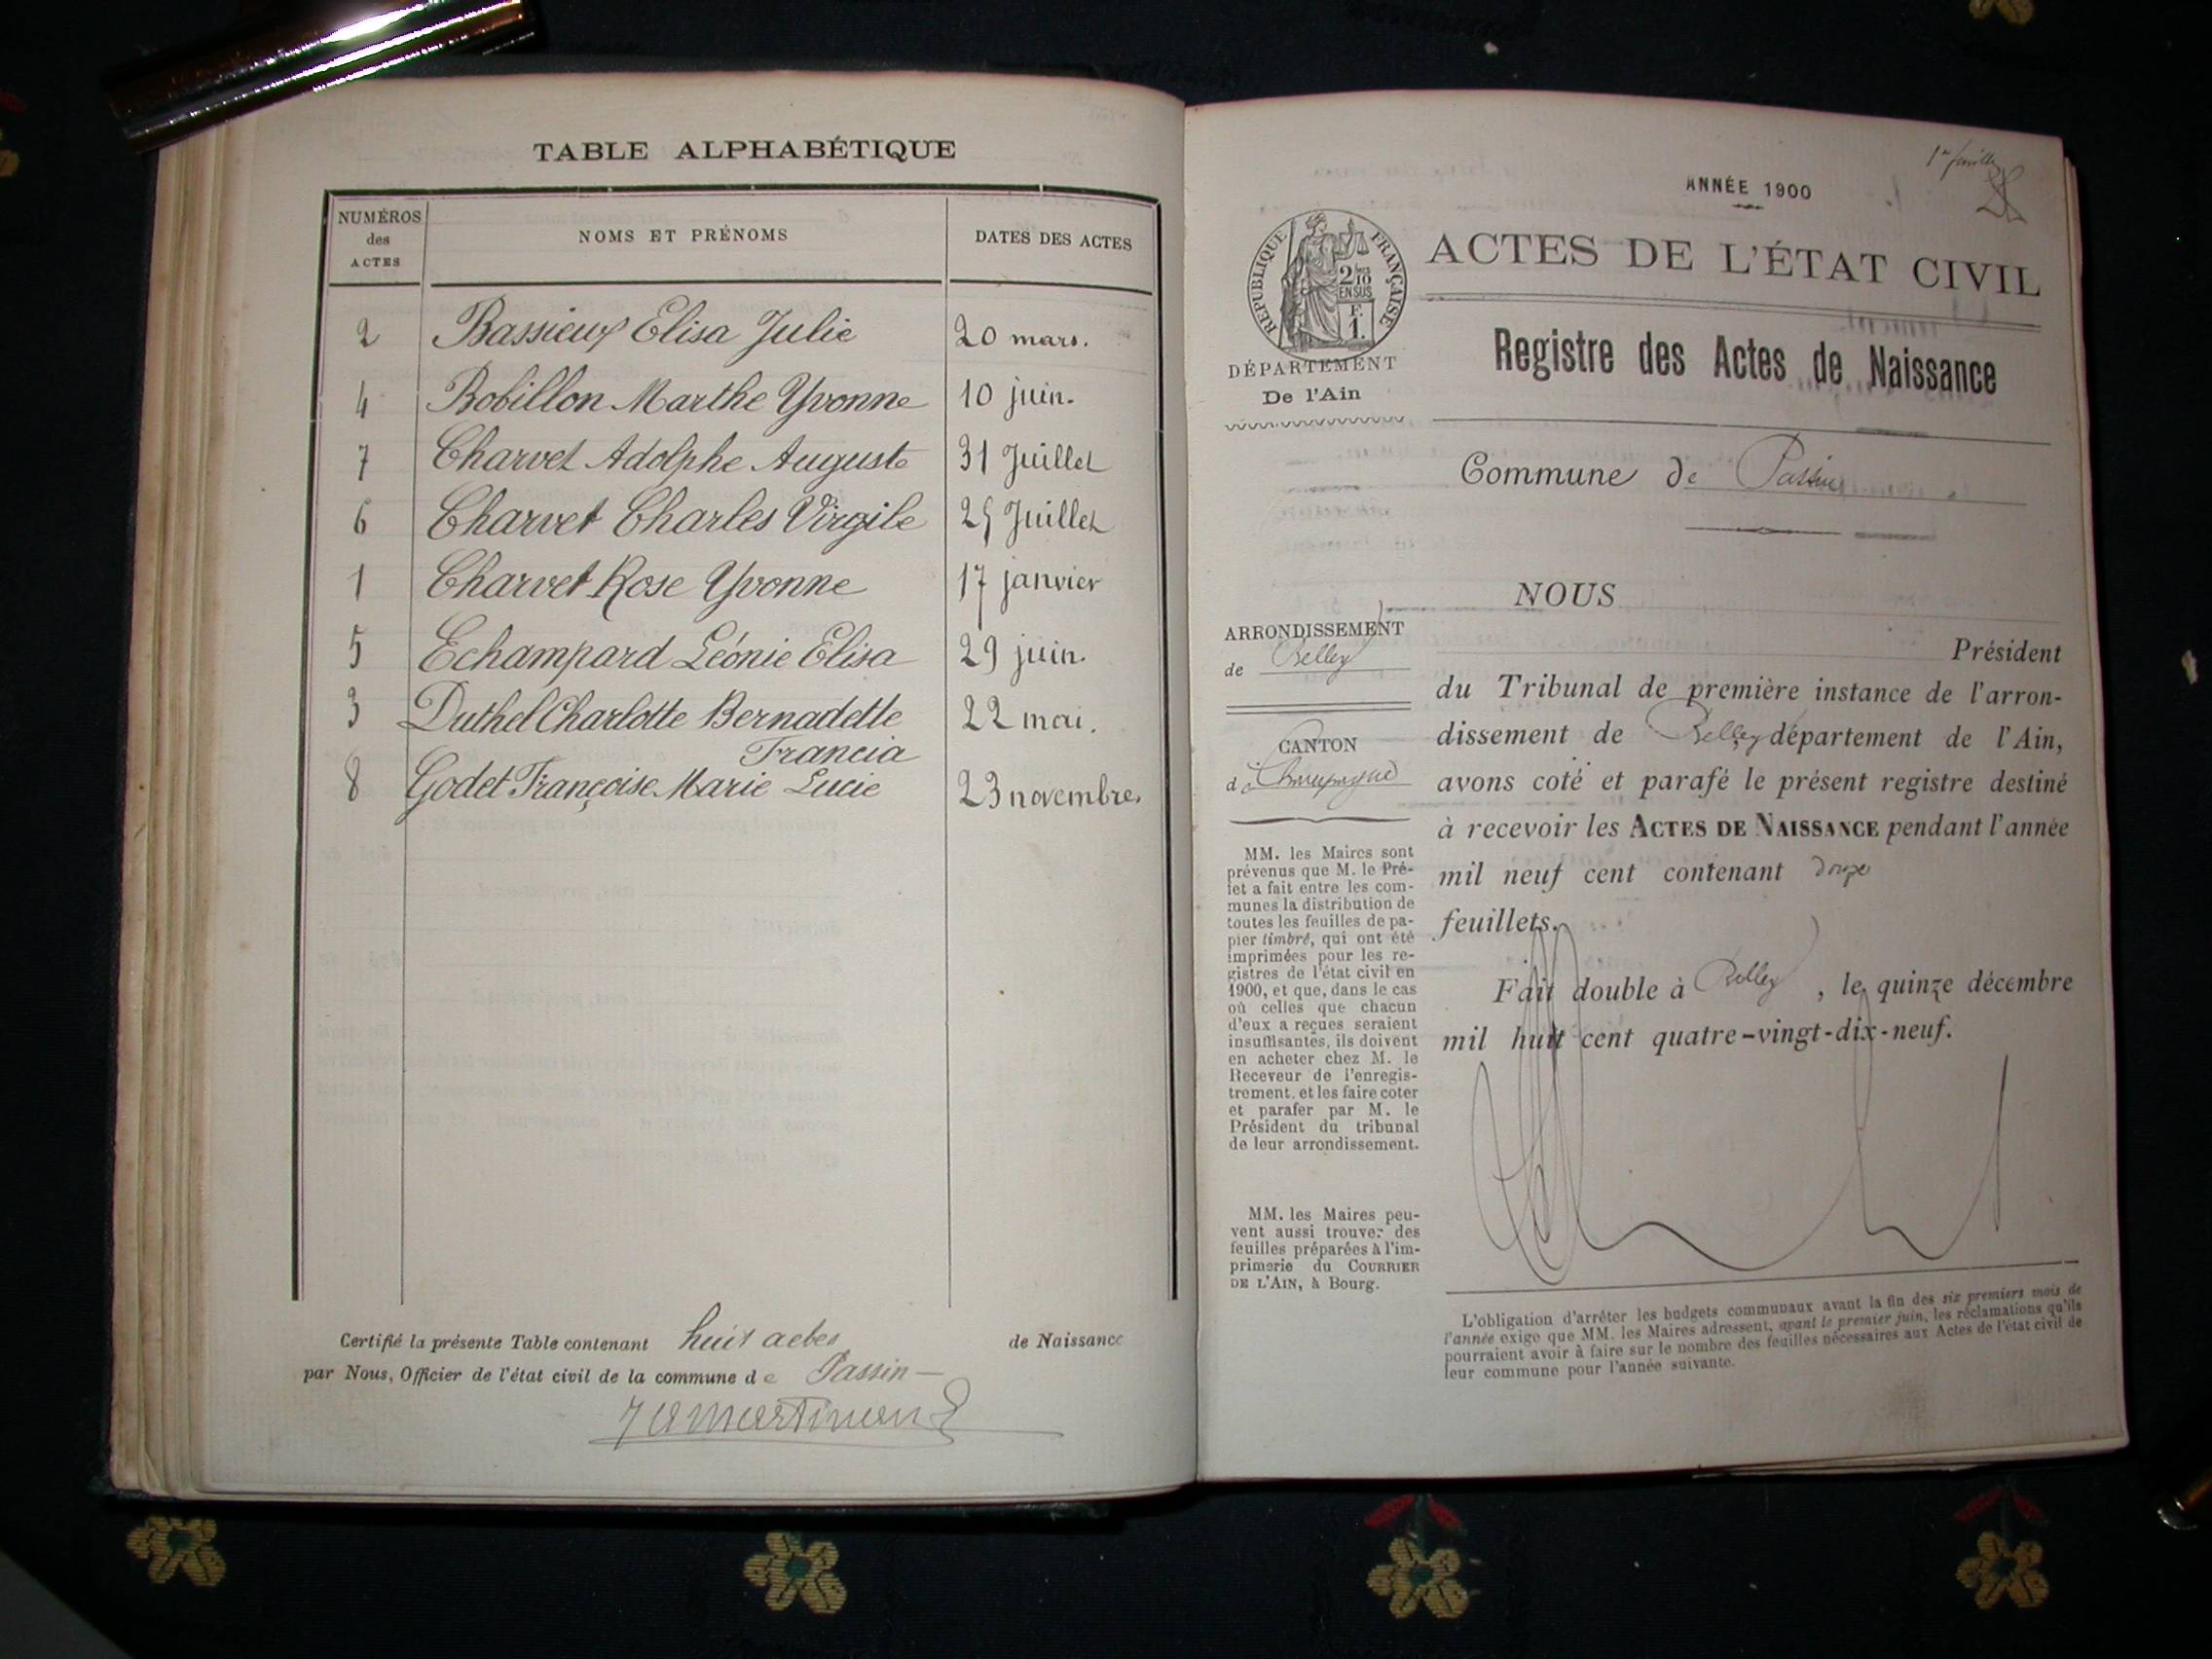 TABLE ALPHABÉTIQUE
NUMÉROS des ACTES
NOMS ET PRÉNOMS
DATES DES ACTES
2 Bassieux Elisa Julie 20 mars.
4 Bobillon Marthe Yvonne 10 juin.
7 Charvet Adolphe Auguste 31 Juillet
6 Charvet Charles Virgile 25 Juillet
1 Charvet Rose Yvonne 17 janvier
5 Echampard Léonie Elisa 29 juin.
3 Duthel Charlotte Bernadette 22 mai.
Francia
8 Godet Françoise Marie Lucie 23 novembre.
Certifié la présente Table contenant huit actes de Naissance
par Nous, Officier de l'état civil de la commune de Passin
1er feuillet
ANNÉE 1900
RÉPUBLIQUE FRANÇAISE
2/10 EN SUS
F. 1.
ACTES DE L'ÉTAT CIVIL
DÉPARTEMENT
De l'Ain
Registre des Actes de Naissance
Commune de Passin
NOUS
ARRONDISSEMENT
de Belley
CANTON
d Champagne
MM. les Maires sont
prévenus que M. le Pré-
fet a fait entre les com-
munes la distribution de
toutes les feuilles de pa-
pier timbré, qui ont été
imprimées pour les re-
gistres de l'état civil en
1900, et que, dans le cas
où celles que chacun
d'eux a reçues seraient
insuffisantes, ils doivent
en acheter chez M. le
Receveur de l'enregis-
trement, et les faire coter
et parafer par M. le
Président du tribunal
de leur arrondissement.
MM. les Maires peu-
vent aussi trouver des
feuilles préparées à l'im-
primerie du COURRIER
DE L'AIN, à Bourg.
Président
du Tribunal de première instance de l'arron-
dissement de Belley département de l'Ain,
avons coté et parafé le présent registre destiné
à recevoir les ACTES DE NAISSANCE pendant l'année
mil neuf cent contenant douze
feuillets.
Fait double à Belley, le quinze décembre
mil huit cent quatre-vingt-dix-neuf.
L'obligation d'arrêter les budgets communaux avant la fin des six premiers mois de
l'année exige que MM. les Maires adressent, avant le premier juin, les réclamations qu'ils
pourraient avoir à faire sur le nombre des feuilles nécessaires aux Actes de l'état civil de
leur commune pour l'année suivante.